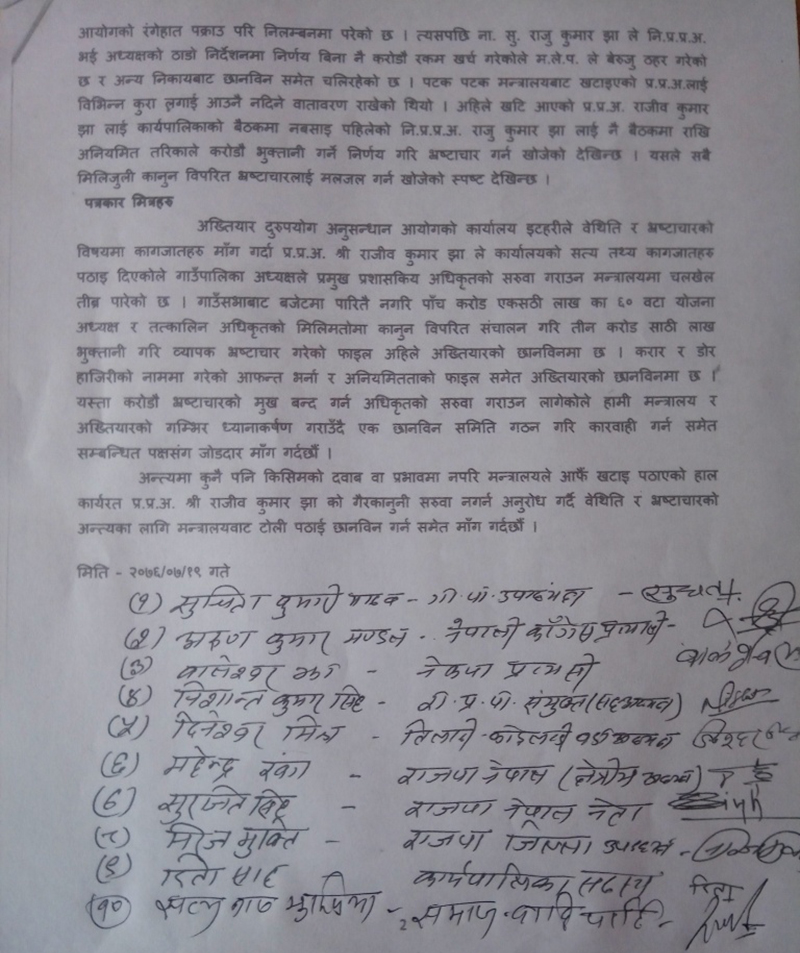 आयोगको रंगेहात पक्राउ परि निलम्बनमा परेको छ । त्यसपछि ना. सु. राजु कुमार झा ले नि.प्र.प्र.अ.
भई अध्यक्षको ठाडो निर्देशनमा निर्णय बिना नै करोडौ रकम खर्च गरेकोले म.ले.प. ले बेरुजु ठहर गरेको
छ र अन्य निकायबाट छानविन समेत चलिरहेको छ । पटक पटक मन्त्रालयबाट खटाइएको प्र.प्र.अ.लाई
विभिन्न कुरा लगाई आउनै नदिने वातावरण राखेको थियो । अहिले खटि आएको प्र.प्र.अ. राजीव कुमार
झा लाई कार्यपालिकाको बैठकमा नबसाइ पहिलेको नि.प्र.प्र.अ. राजु कुमार झा लाई नै बैठकमा राखि
अनियमित तरिकाले करोडौ भुक्तानी गर्ने निर्णय गरि भ्रष्टाचार गर्न खोजेको देखिन्छ । यसले सबै
मिलिजुली कानुन विपरित भ्रष्टाचारलाई मलजल गर्न खोजेको स्पष्ट देखिन्छ ।
पत्रकार मित्रहरु
अख्तियार दुरुपयोग अनुसन्धान आयोगको कार्यालय इटहरीले वेथिति र भ्रष्टाचारको
विषयमा कागजातहरु माँग गर्दा प्र.प्र.अ. श्री राजीव कुमार झा ले कार्यालयको सत्य तथ्य कागजातहरु
पठाइ दिएकोले गाउँपालिका अध्यक्षले प्रमुख प्रशासकिय अधिकृतको सरुवा गराउन मन्त्रालयमा चलखेल
तीब्र पारेको छ । गाउँसभाबाट बजेटमा पारितै नगरि पाँच करोड एकसठी लाख का ६० वटा योजना
अध्यक्ष र तत्कालिन अधिकृतको मिलिमतोमा कानुन विपरित संचालन गरि तीन करोड साठी लाख
भुक्तानी गरि व्यापक भ्रष्टाचार गरेको फाइल अहिले अख्तियारको छानविनमा छ । करार र डोर
हाजिरीको नाममा गरेको आफन्त भर्ना र अनियमितताको फाइल समेत अख्तियारको छानविनमा छ ।
यस्ता करोडौ भ्रष्टाचारको मुख बन्द गर्न अधिकृतको सरुवा गराउन लागेकोले हामी मन्त्रालय र
अख्तियारको गम्भिर ध्यानाकर्षण गराउँदै एक छानविन समिति गठन गरि कारवाही गर्न समेत
सम्बन्धित पक्षसंग जोडदार माँग गर्दछौँ ।
अन्त्यमा कुनै पनि किसिमको दवाब वा प्रभावमा नपरि मन्त्रालयले आफैँ खटाइ पठाएको हाल
कार्यरत प्र.प्र.अ. श्री राजीव कुमार झा को गैरकानुनी सरुवा नगर्न अनुरोध गर्दै वेथिति र भ्रष्टाचारको
अन्त्यका लागि मन्त्रालयवाट टोली पठाई छानविन गर्न समेत माँग गर्दछौँ ।
मिति - २०७६/०७/१९ गते
(१) सुचिता कुमारी यादव - गा.पा. उपाध्यक्ष -
(२) अरुण कुमार मण्डल - नेपाली काँग्रेस
(३) बालेश्वर - नेकपा
(४) निशान्त कुमार सिंह - रा.प्र.पा. संयुक्त
(५) दिनेश्वर मिश्र - तिलाठी कोइलाडी वडा अध्यक्ष
(६) महेन्द्र - राजपा नेपाल
(७) सुरजित सिंह - राजपा नेपाल नेता
(८) मुक्ति - राजपा जिल्ला उपाध्यक्ष -
(९) साह कार्यपालिका सदस्य
(१०) - समाजवादी पार्टी -